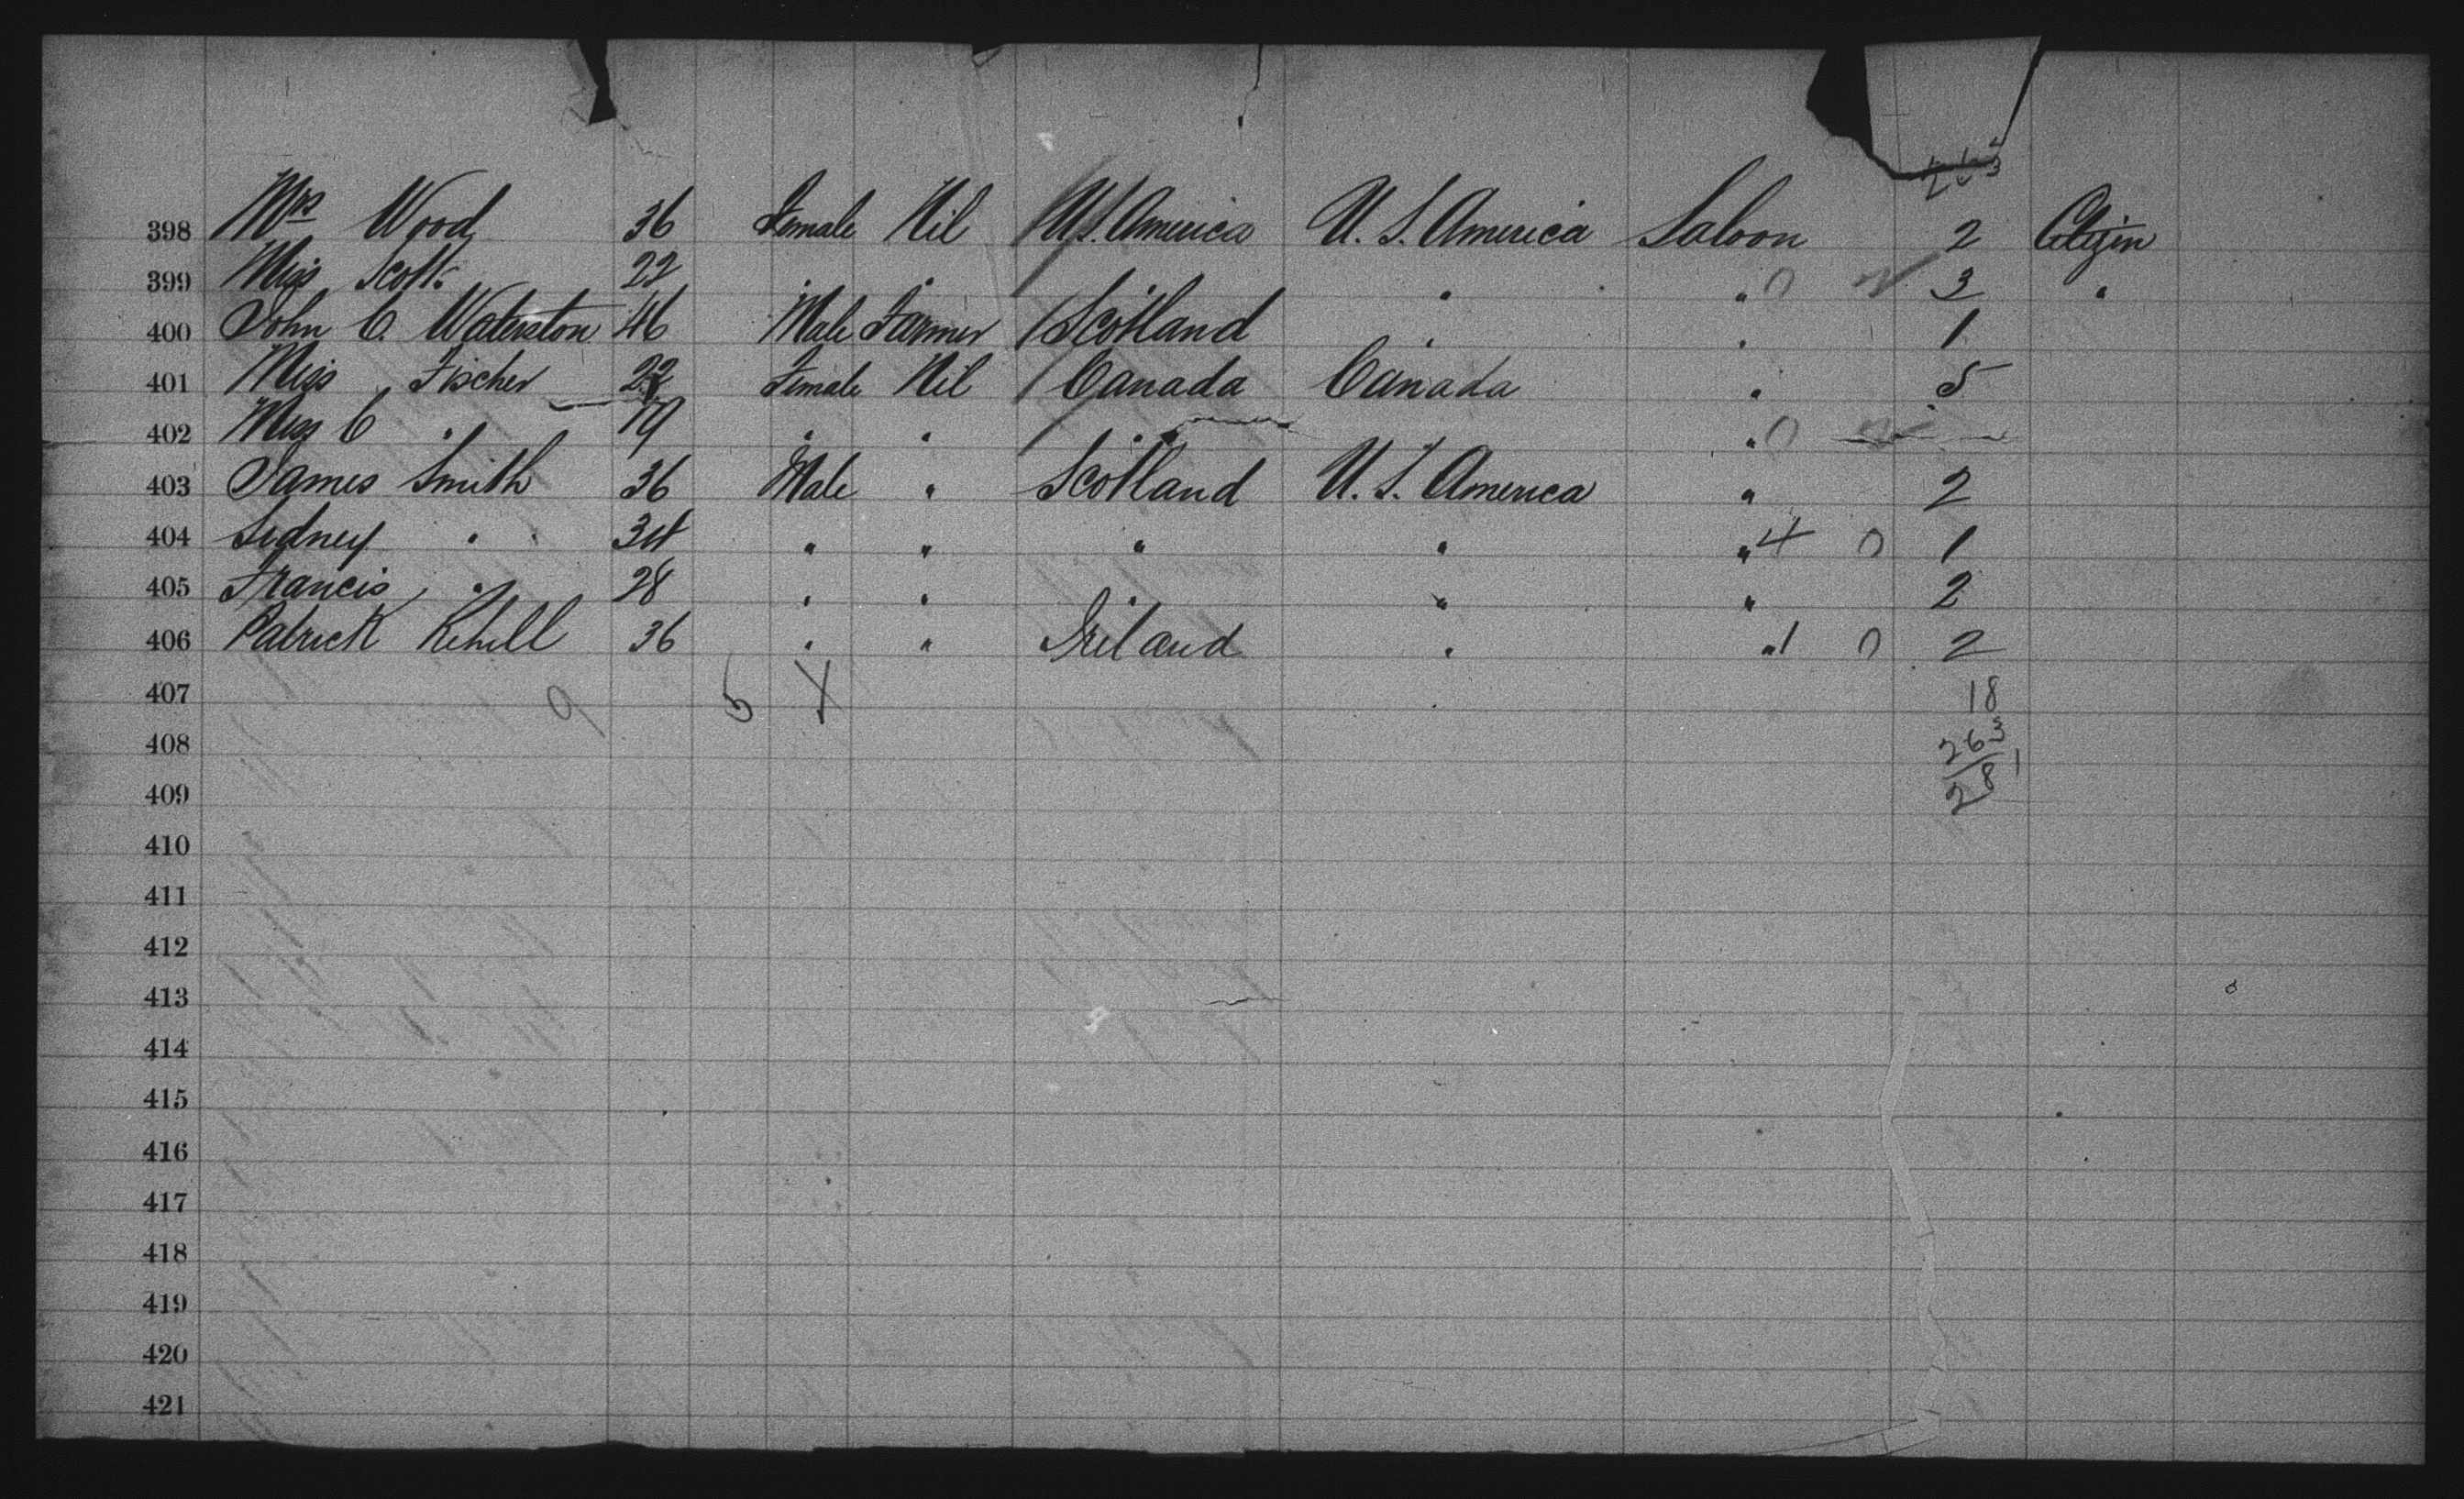 263
398 Mrs Wood 36 Female Nil U.S. America U. S. America Saloon 2 Citizen
399 Miss Scott 22 " " " " " 0 3 "
400 John C. Waterston 46 Male Farmer Scotland " " 1
401 Miss Fischer 22 Female Nil Canada Canada " 5
402 Miss C " 19 " " " " 0
403 James Smith 36 Male " Scotland U. S. America " 2
404 Sidney " 34 " " " " " 4 0 1
405 Francis " 28 " " " " " 2
406 Patrick Kehill 36 " " Ireland " " 1 0 2
407 9 5 4 18
408 263
409 281
410
411
412
413
414
415
416
417
418
419
420
421